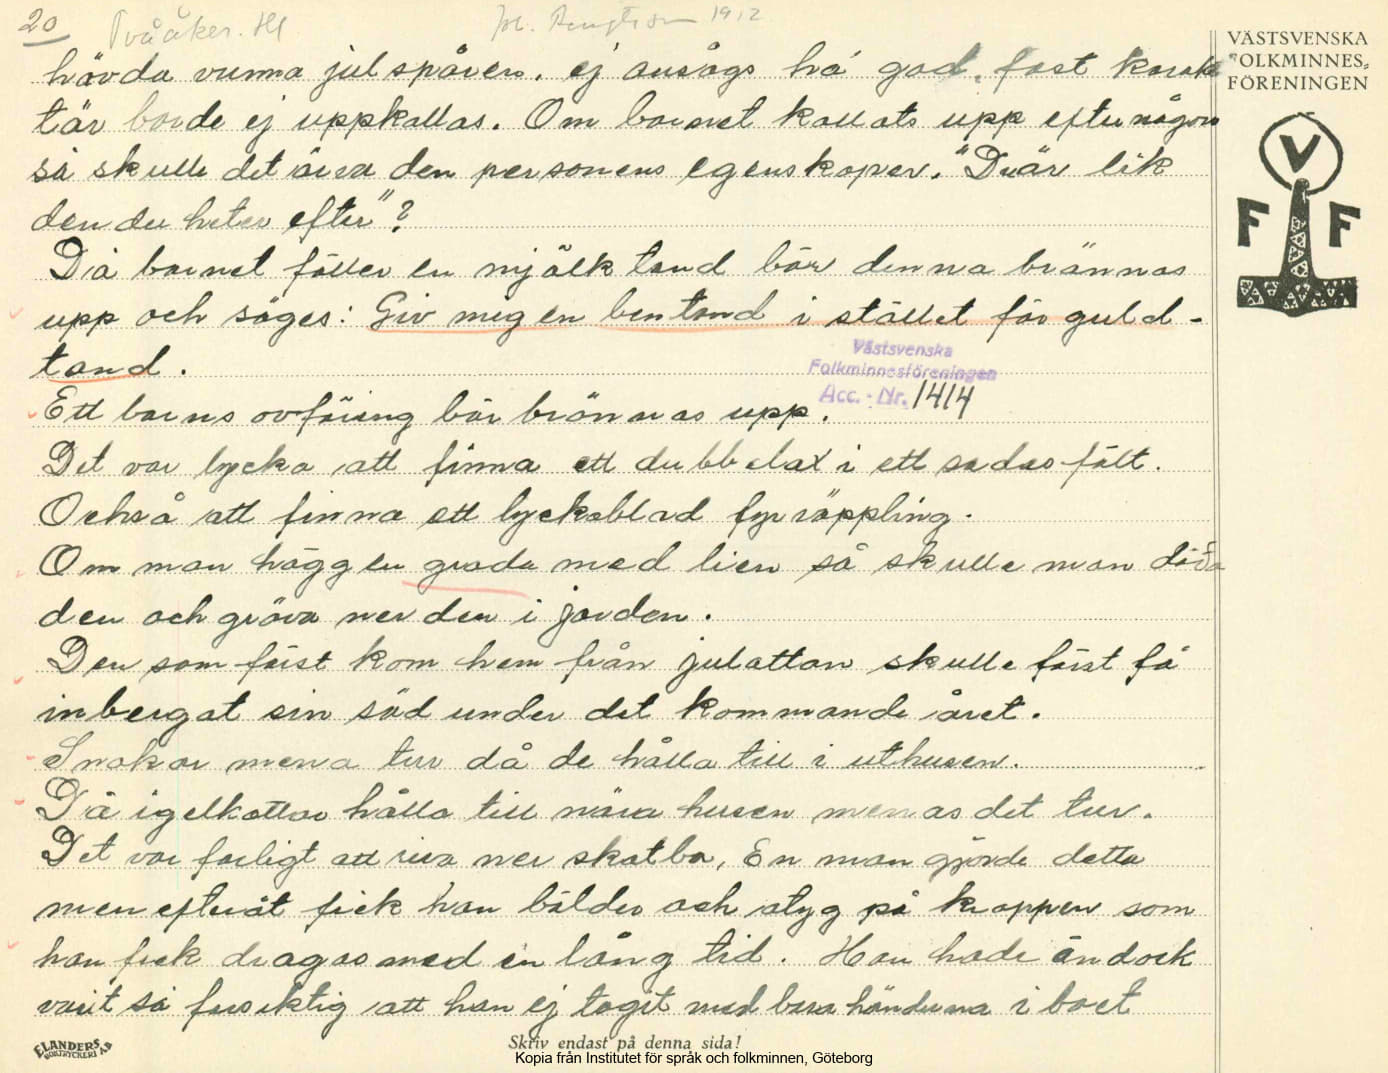 20
Tvååker. Hl
1912
VÄSTSVENSKA
FOLKMINNES-
FÖRENINGEN
V
F F
hövda vunna julspåren. ej ansågs ha god, fast karak
tär borde ej uppkallas. Om barnet kallats upp efter någon
så skulle det ärva den personens egenskaper. "Du är lik
den du heter efter"?
Då barnet fäller en mjölktand bör denna brännas
upp och säges: Giv mig en bentand i stället för guld-
tand.
Västsvenska
Folkminnesföreningen
Acc. - Nr. 1414
Ett barns avföring bör brännas upp.
Det var lycka att finna ett dubbelax i ett sädesfält.
Också att finna ett lyckoblad fyrväppling.
Om man högg en groda med lien så skulle man döda
den och gräva ner den i jorden.
Den som först kom hem från julottan skulle först få
inbergat sin säd under det kommande året.
Snokar mena tur då de hålla till i uthusen.
Då igelkottar hålla till nära husen menas det tur.
Det var farligt att riva ner skatbo, En man gjorde detta
men efteråt fick han bölder och otyg på kroppen som
han fick dragas med en lång tid. Han hade ändock
varit så försiktig att han ej tagit med bara händerna i boet
ELANDERS
BOKTRYCKERI AB
Skriv endast på denna sida!
Kopia från Institutet för språk och folkminnen, Göteborg